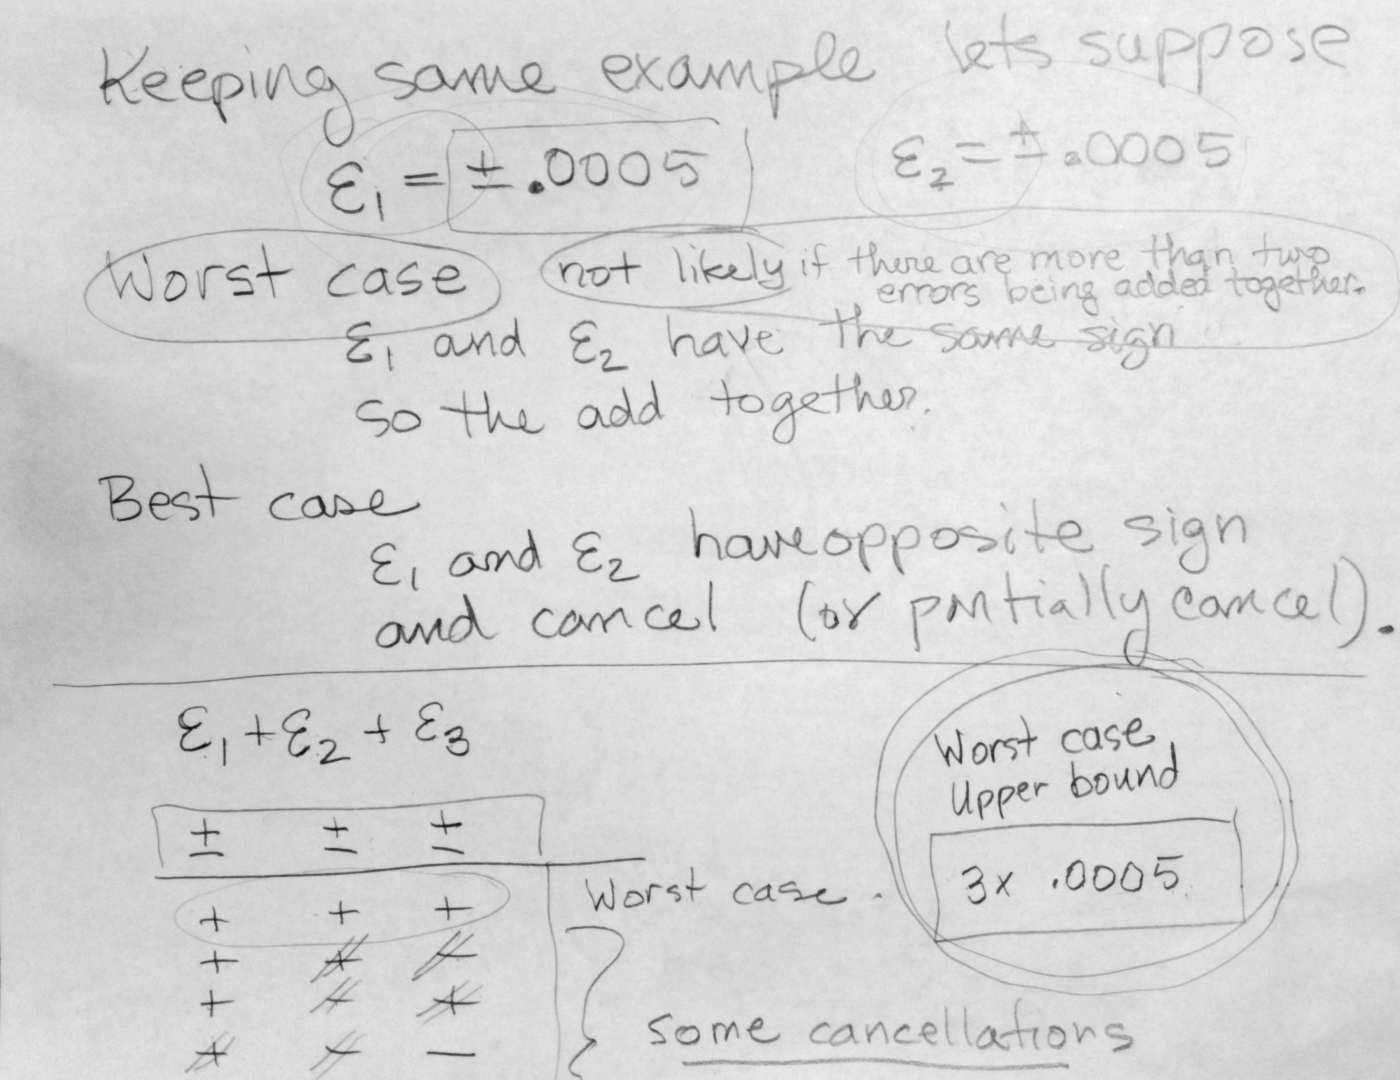 Keeping same example lets suppose
ε₁ = ± .0005 ε₂ = ± .0005
Worst case not likely if there are more than two
errors being added together.
ε₁ and ε₂ have the same sign
so the add together.
Best case
ε₁ and ε₂ have opposite sign
and cancel (or partially cancel).
ε₁ + ε₂ + ε₃
Worst case
Upper bound
3x .0005
± ± ±
+ + + Worst case.
+ + -
+ - +
+ - -
some cancellations